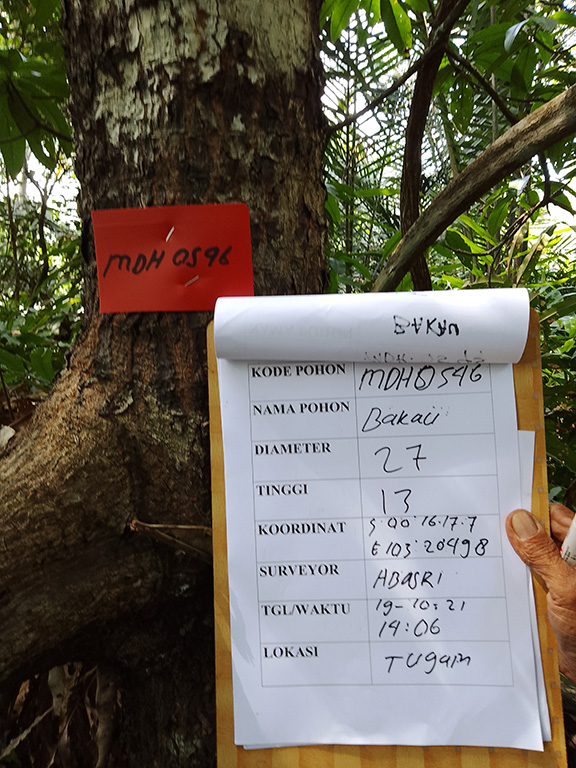 MDH 0596
KODE POHON MDH0596
NAMA POHON Bakau
DIAMETER 27
TINGGI 13
KOORDINAT S 00°16.17.7
E 103°20498
SURVEYOR ABASRI
TGL/WAKTU 19-10:21
14:06
LOKASI TUgam